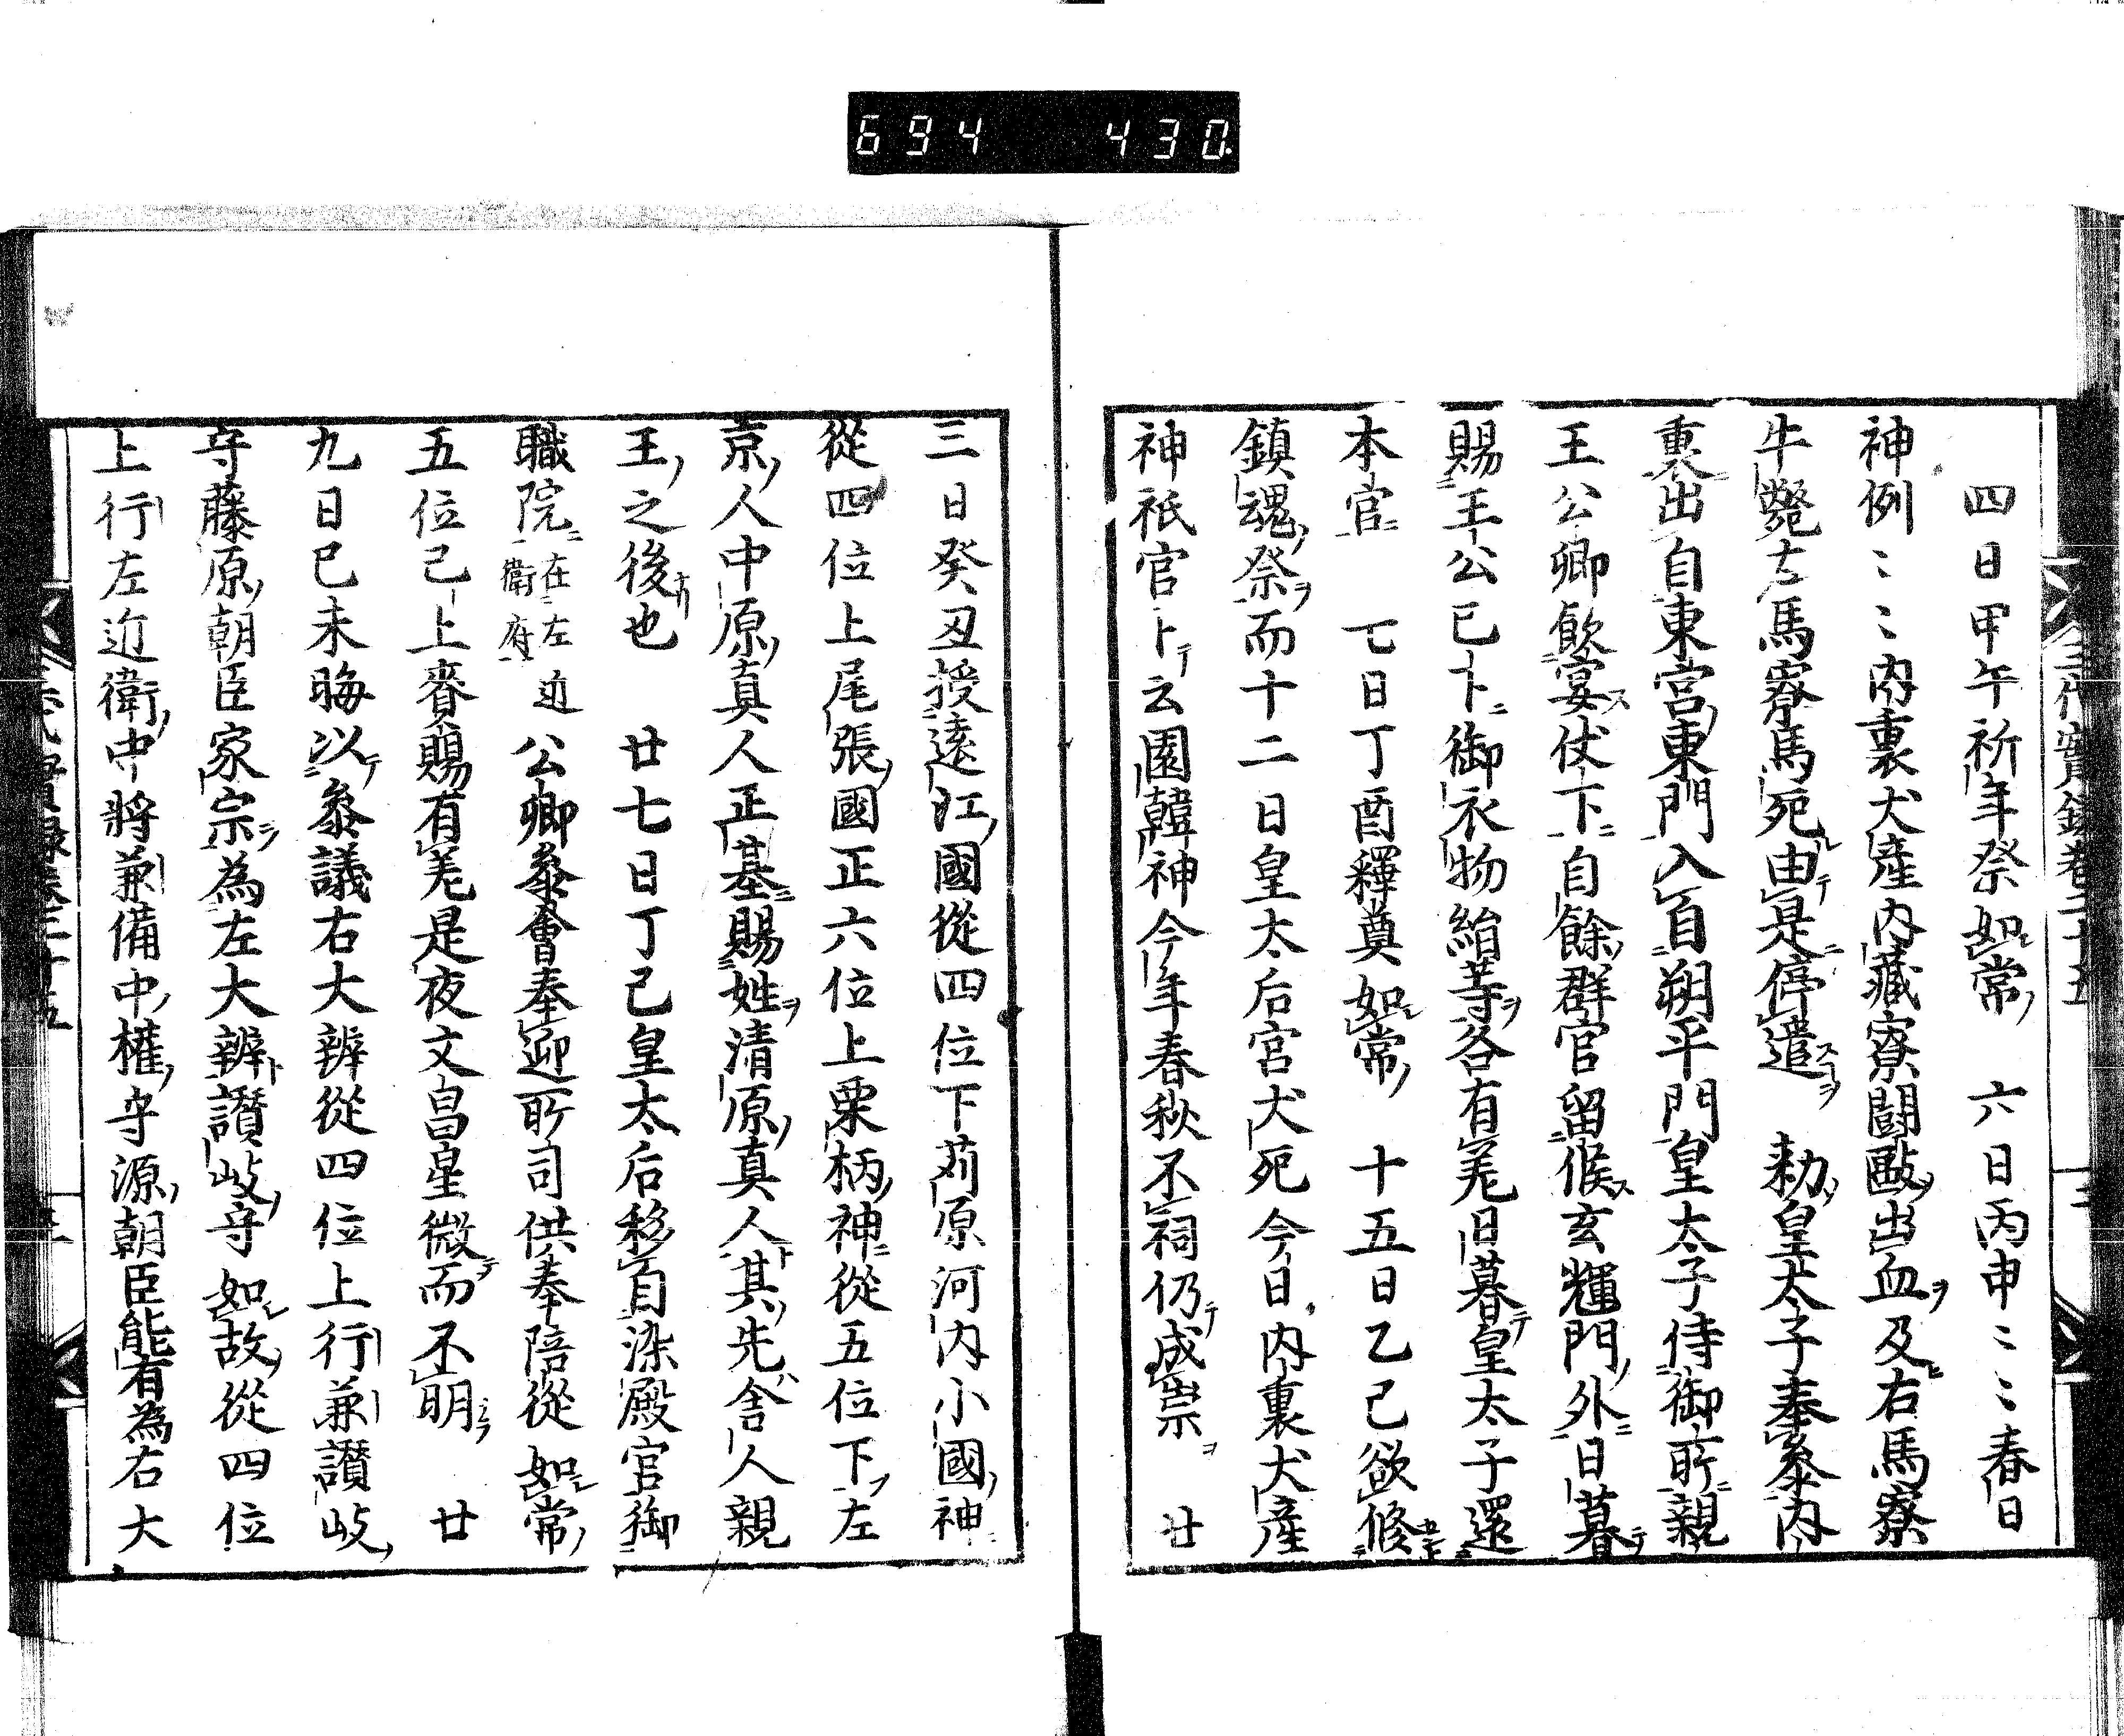 694 430
四日甲午祈年祭如常 六日丙申〻〻春日
神例〻〻内裏犬產内藏寮鬪敺出血及右馬寮
牛斃左馬寮馬死由是停遣 勅皇太子奉參内
裏出自東宮東門入自朔平門皇太子侍御所親
王公卿飲宴仗下自餘群官留候玄輝門外日暮
賜王公已下御衣物絹等各有差日暮皇太子還
本宮 七日丁酉釋奠如常 十五日乙巳欲修
鎮魂祭而十二日皇太后宮犬死今日内裏犬產
神祇官卜云園韓神今年春秋不祠仍成祟 廿
三日癸丑授遠江國從四位下苅原河内小國神
從四位上尾張國正六位上栗柄神從五位下左
京人中原真人正基賜姓清原真人其先舍人親
王之後也 廿七日丁巳皇太后移自染殿宮御
職院在左近衛府 公卿參會奉迎所司供奉陪從如常
五位已上賚賜有差是夜文昌星微而不明 廿
九日己未晦以參議右大辨從四位上行兼讃岐
守藤原朝臣家宗為左大辨讃岐守如故從四位
上行左近衛中將兼備中權守源朝臣能有為右大